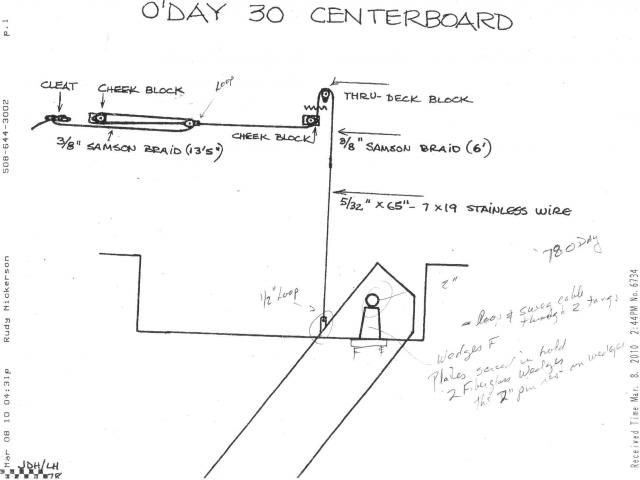 O'DAY 30 CENTERBOARD
CLEAT
CHEEK BLOCK
LOOP
THRU-DECK BLOCK
CHEEK BLOCK
3/8" SAMSON BRAID (13'5")
3/8" SAMSON BRAID (6')
5/32" x 65" - 7 x 19 STAINLESS WIRE
78 ODAY
1/2" LOOP
2"
loop & swag cable
through 2 tangs
Wedges F
Plates screw in hold
2 Fiberglass Wedges
the 2" pin on wedges
F F
JDH/LH
p.1
508-644-3002
Rudy Nickerson
Mar 08 10 04:31p
Received Time Mar. 8. 2010 2:44PM No. 6734